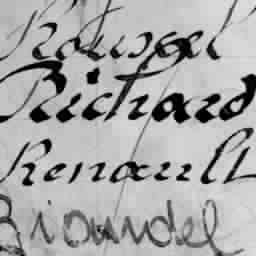 Roussel
Richard
Renault
Bioundel